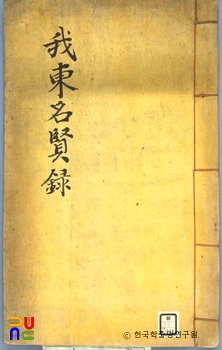 我東名賢録
ⓒ 한국학중앙연구원